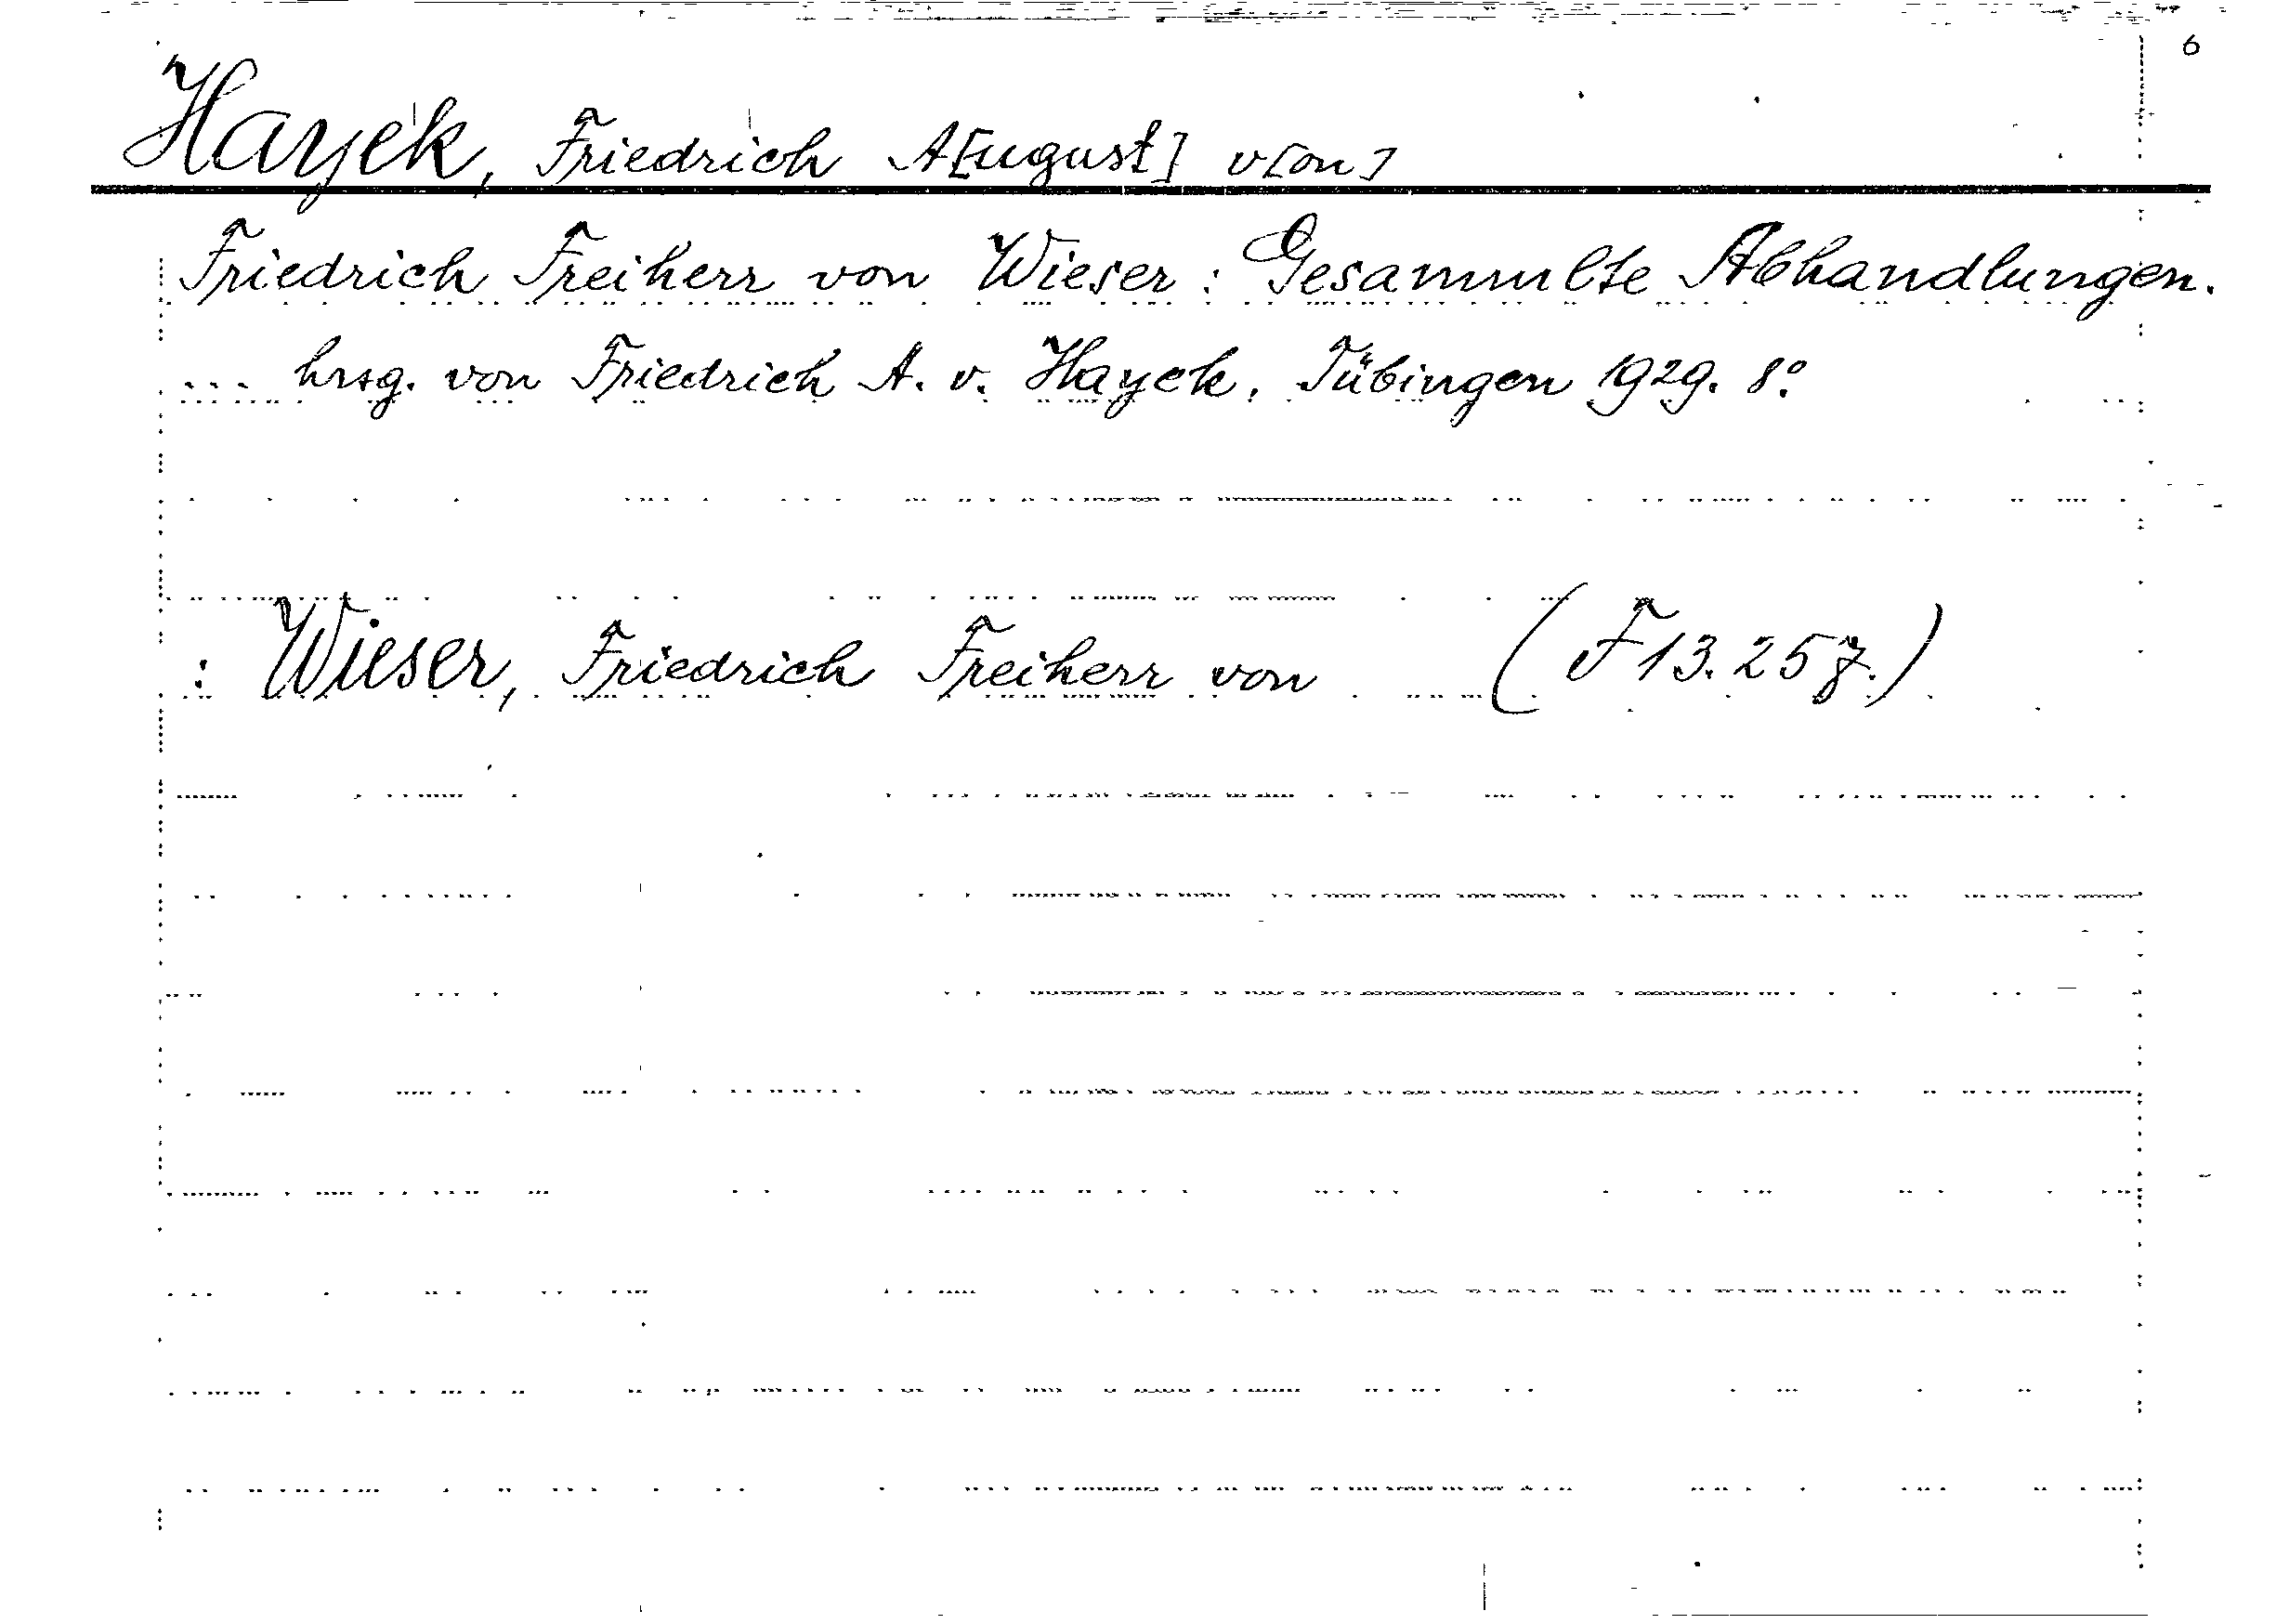 6
Hayek, Friedrich A[ugust] v[on]
Friedrich Freiherr von Wieser : Gesammelte Abhandlungen.
... hrsg. von Friedrich A. v. Hayek. Tübingen 1929. 8°.
: Wieser, Friedrich Freiherr von (F 13.257.)